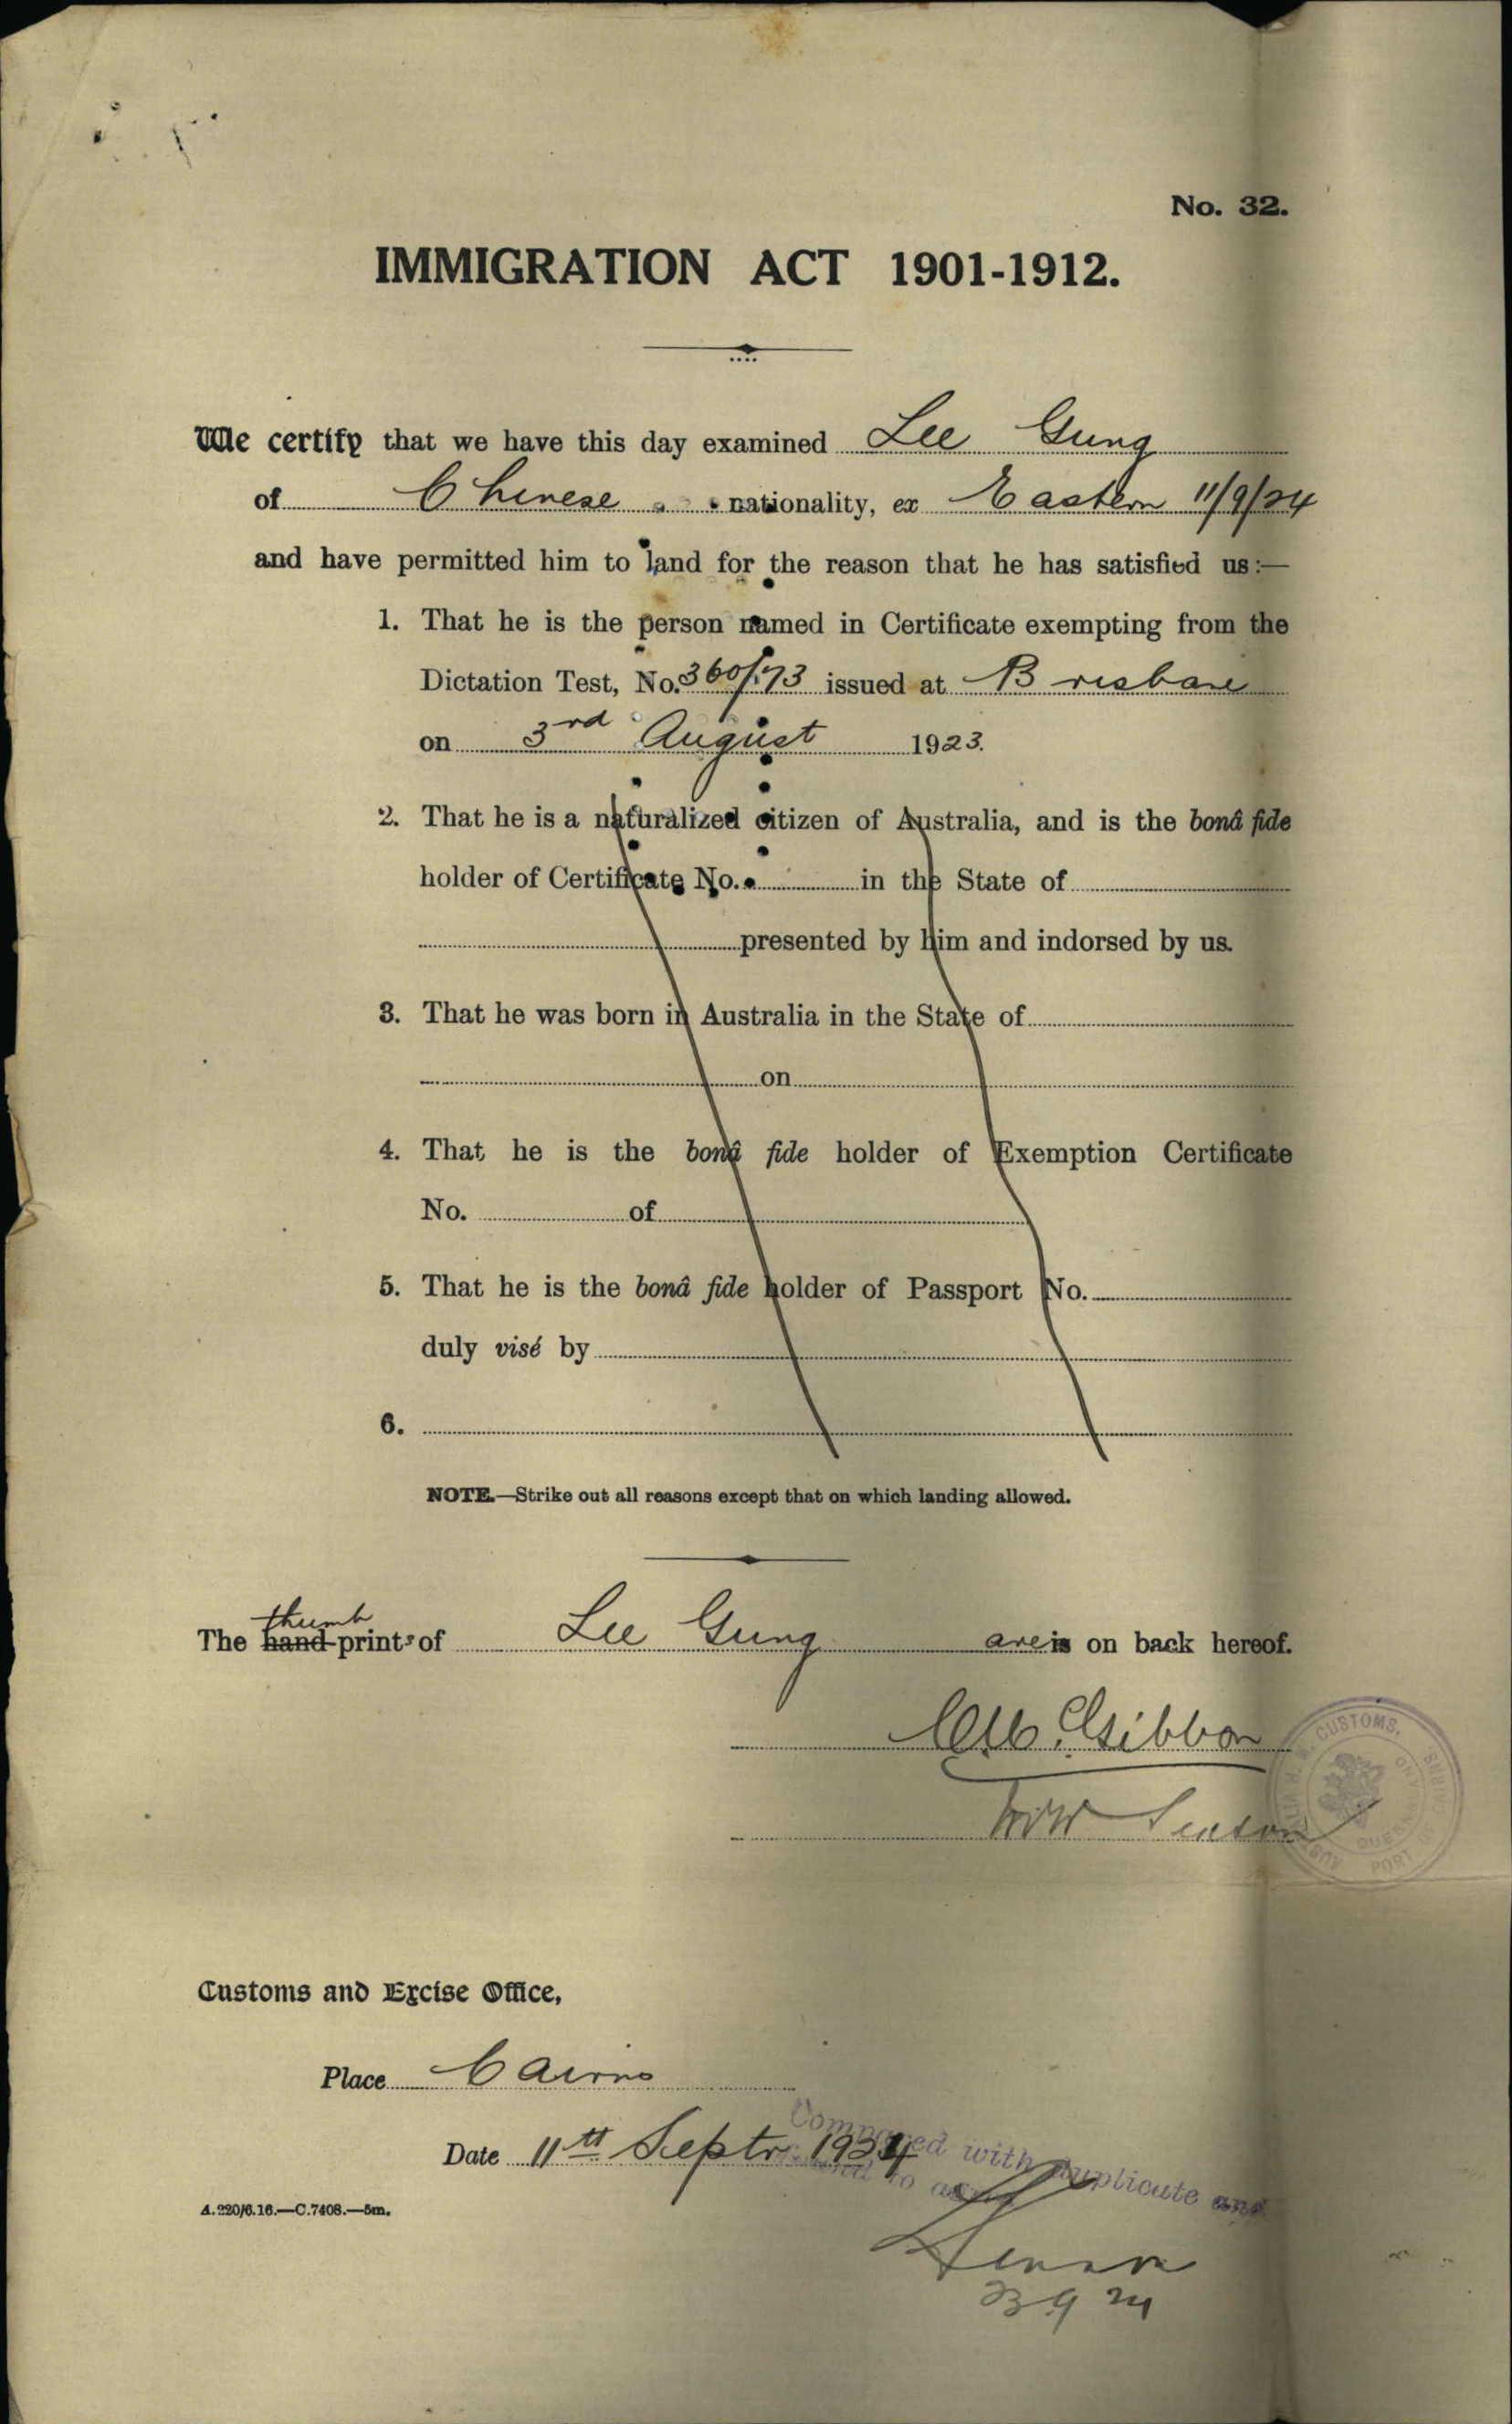 No. 32.
IMMIGRATION ACT 1901-1912.
We certify that we have this day examined Lee Gung
of Chinese nationality, ex Eastern 11/9/24
and have permitted him to land for the reason that he has satisfied us:—
1. That he is the person named in Certificate exempting from the
Dictation Test, No. 360/73 issued at Brisbane
on 3rd August 1923.
2. That he is a naturalized citizen of Australia, and is the bonâ fide
holder of Certificate No. in the State of
presented by him and indorsed by us.
3. That he was born in Australia in the State of
on
4. That he is the bonâ fide holder of Exemption Certificate
No. of
5. That he is the bonâ fide holder of Passport No.
duly visé by
6.
NOTE.—Strike out all reasons except that on which landing allowed.
thumb
The hand-prints of Lee Gung are is on back hereof.
Gibbon
CUSTOMS.
PORT
Customs and Excise Office,
Place Cairns
Date 11th Septr. 1924
Compared with duplicate and
A.220/6.16.—C.7408.—5m.